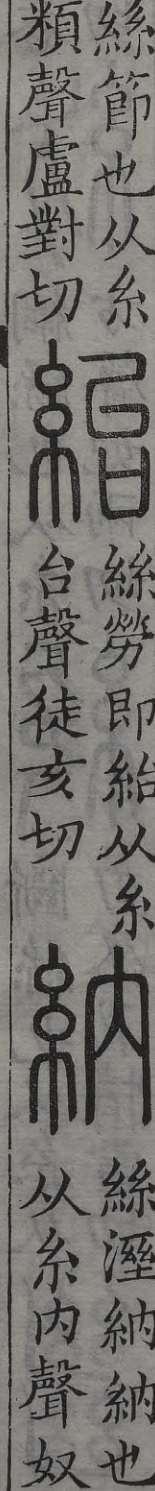 絲節也从糸
頪聲盧對切
紿
絲勞即紿从糸
台聲徒亥切
納
絲溼納納也
从糸内聲奴